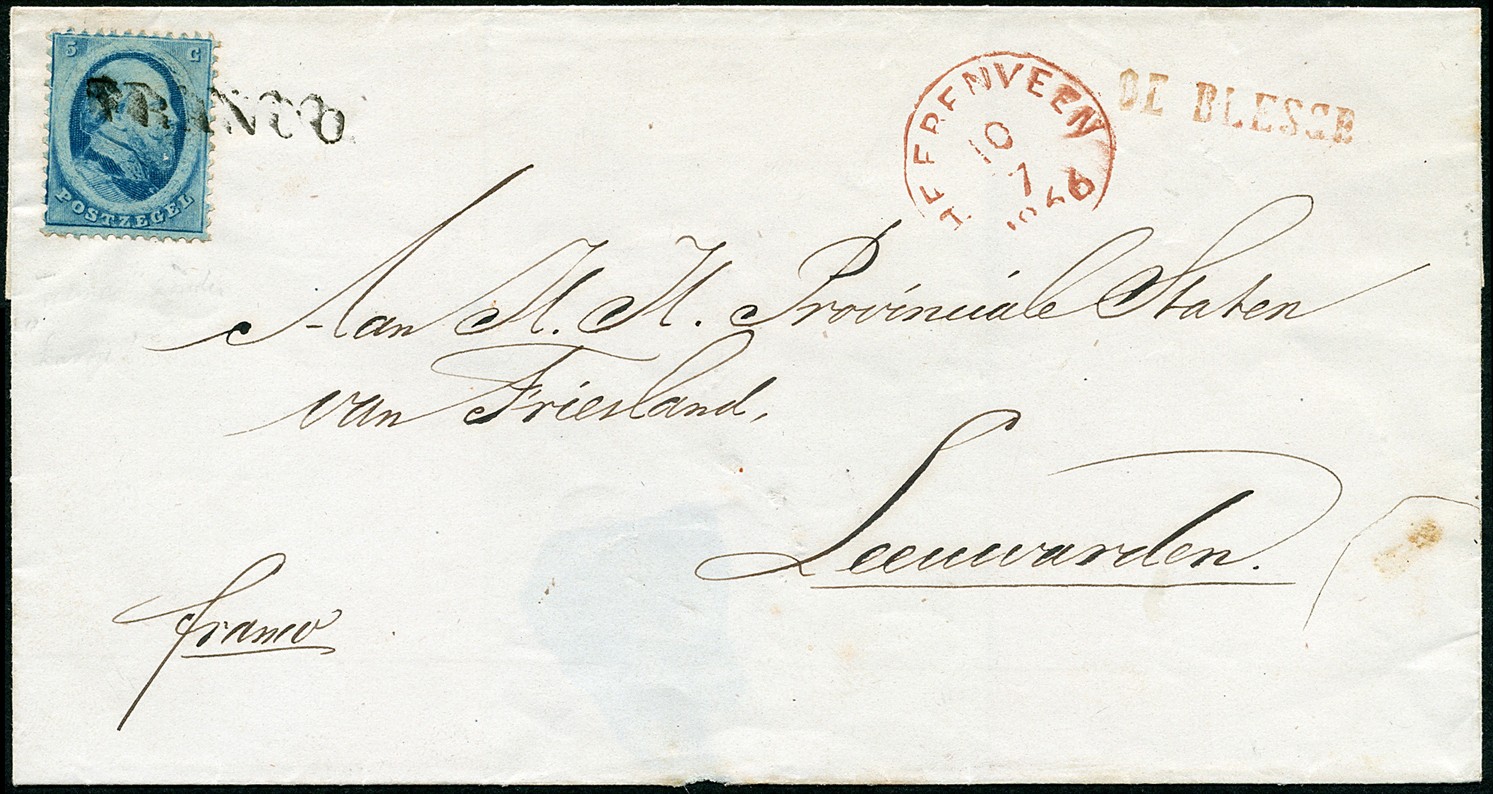 5 C
POSTZEGEL
FRANCO
HEERENVEEN
10
1
1866
DE BLESSE
Aan H. H. Provinciale Staten
van Friesland,
Leeuwarden.
franco